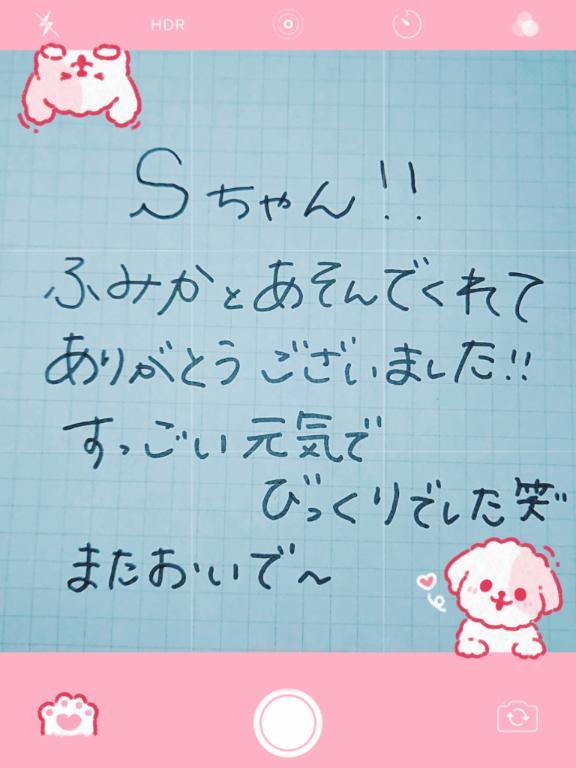 HDR
Sちゃん!!
ふみかとあそんでくれて
ありがとうございました!!
すっごい元気で
びっくりでした笑
またおいで〜